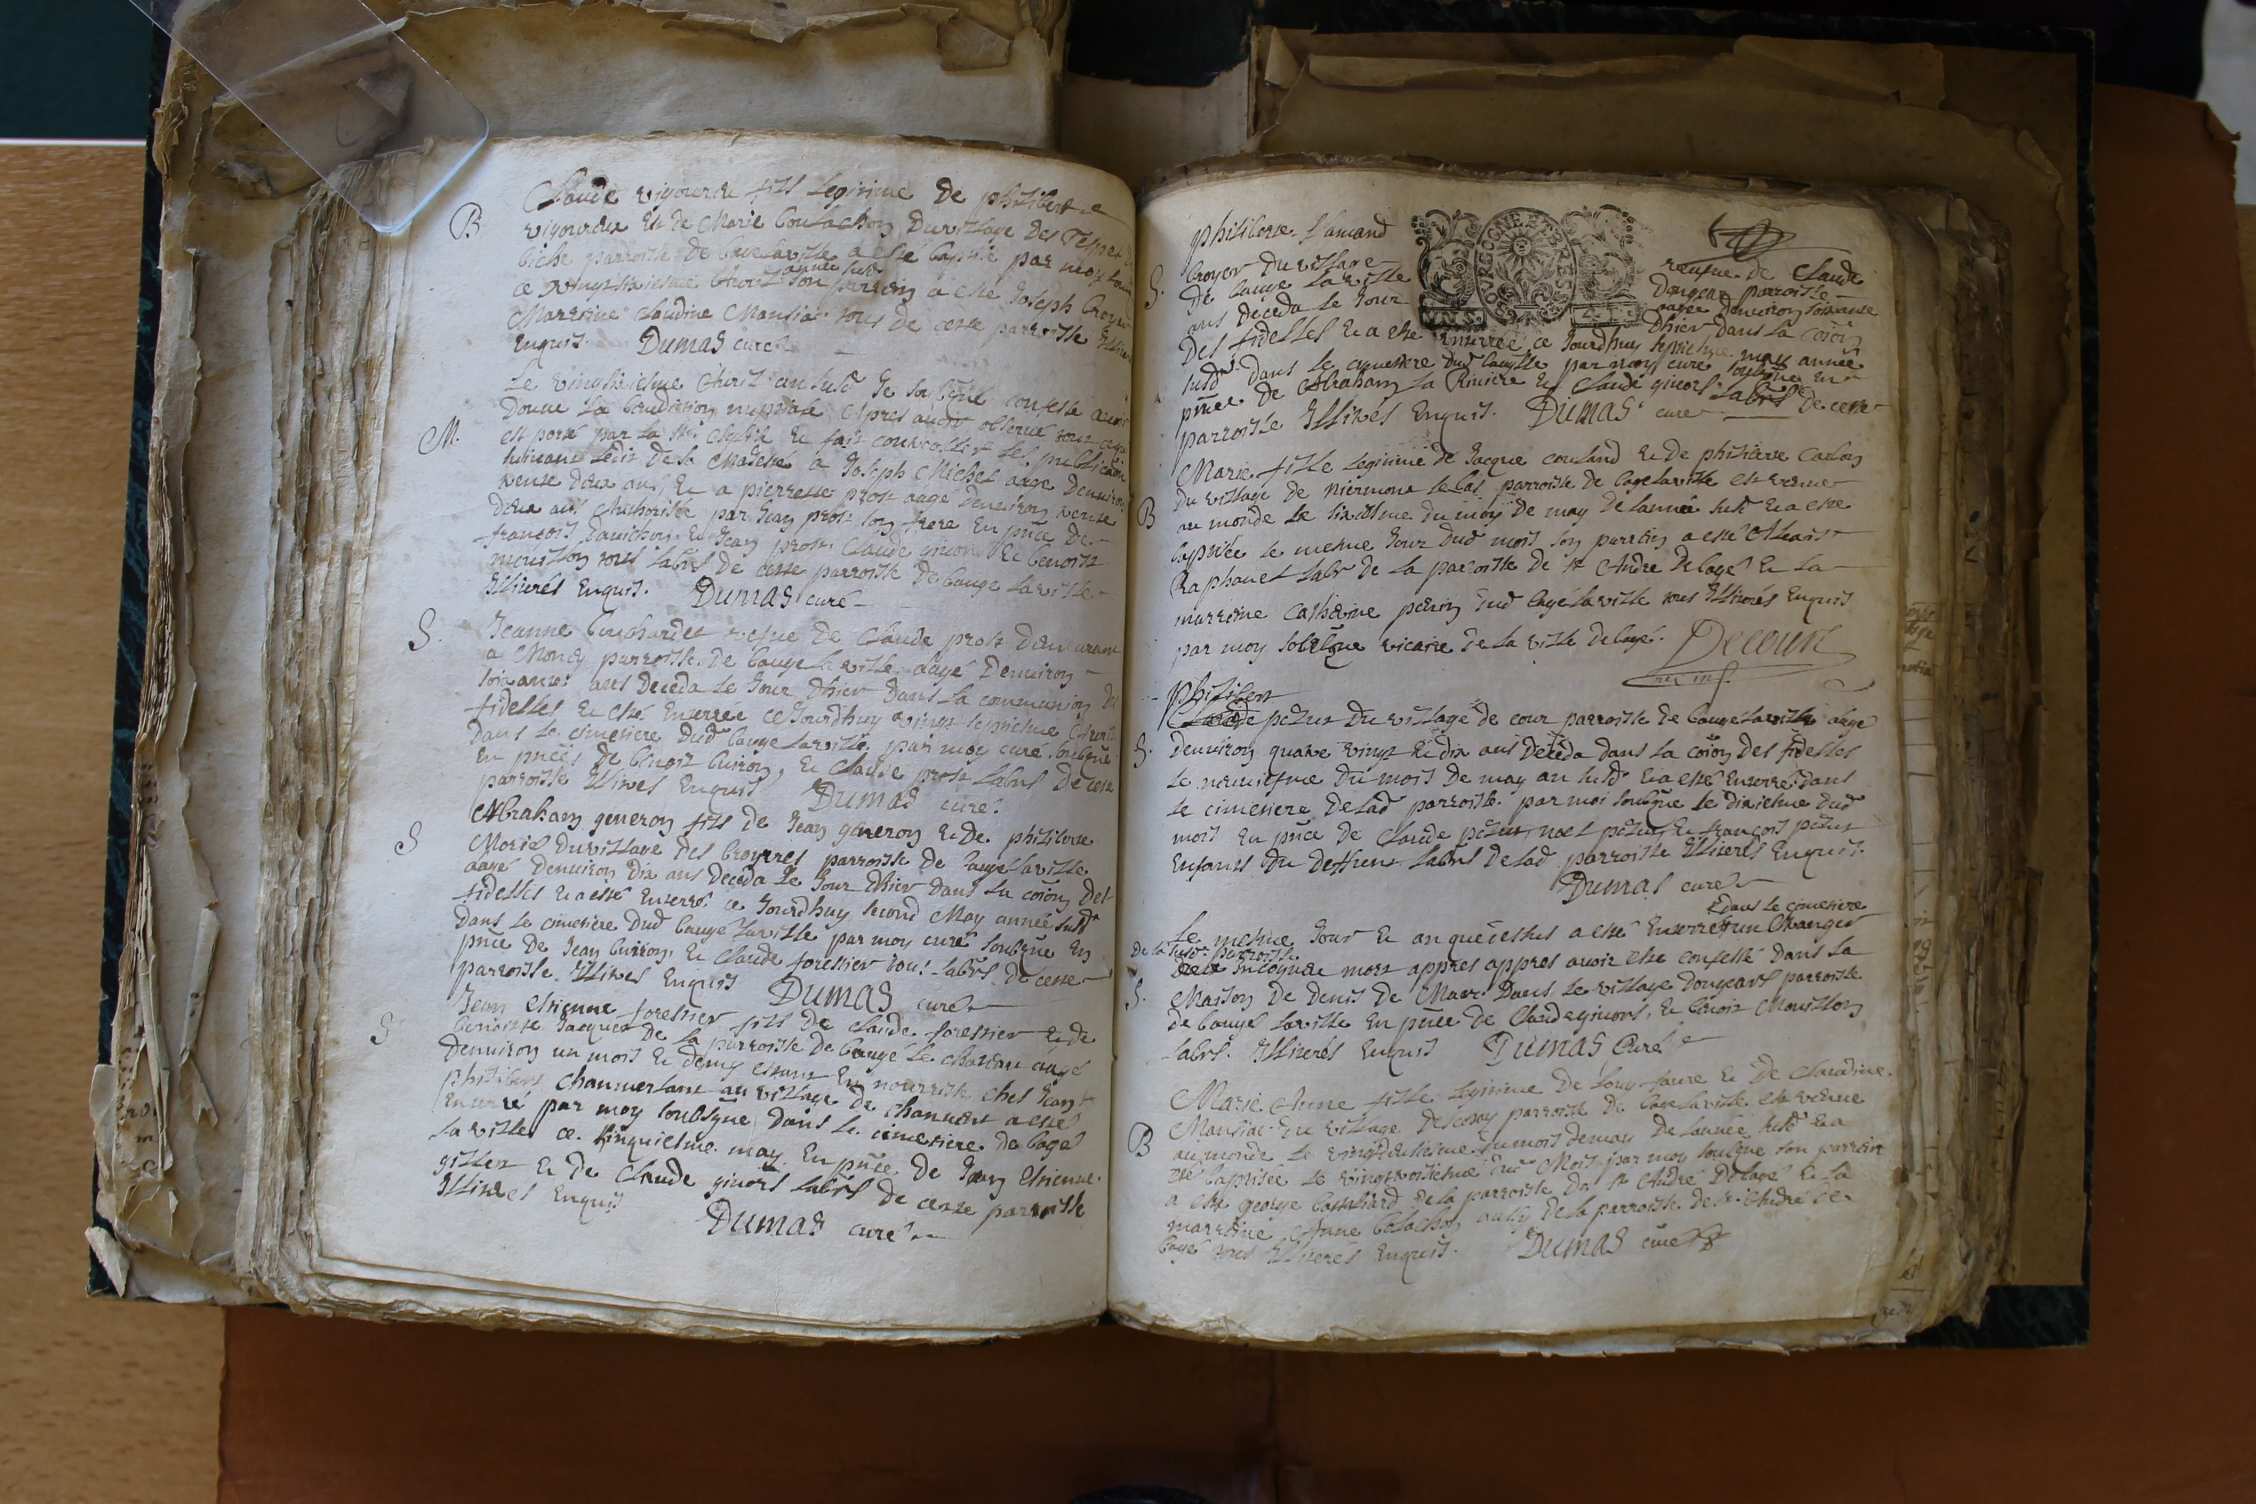 Claude vigoureu fils legitime de philibert
B
vigoureux Et de Marie Coulachon du village des
parroisse de Bauge laville a esté baptisé par moy
ce vingtsixiesme Avril année susd son parrein a esté Joseph
Marreine Claudine Mansiat tous de cette parroisse Illiterés
Enquis. Dumas curé
Le vingtsixiesme Avril an susd Je soubsigné confesse avoir
donné La benediction nuptiale apres avoir observé tout ce qui
M.
est porté par la Ste Eglise et fait controller les publications
suivant ledit de sa Majesté a Joseph Michel aagé denviron
trente deux ans, Et a pierrette prost aagé denviron trente
deux ans authorisée par Jean prost son frere En pnce de
françois pauichon Et Jean prost Claude givors Et benoist
mouillon tous labrs de cette parroisse de bauge laville
Illiterés Enquis. Dumas curé
S.
Jeanne Guichardet vefve de Claude prost demeurant
a Moncy parroisse de bauge laville aagé denviron
soixante ans deceda le Jour dhier dans la communion des
fidelles Et esté Enterrée ce Jourdhuy vingt septiesme Avril
dans le cimetiere dud bauge laville par moy curé soubsigné
En pnces de benoit buiron, Et Claude prost labrs de cette
parroisse Illiteres Enquis Dumas curé.
S
Abraham generon fils de Jean generon Et de philiberte
Morel du village des broyeres parroisse de bauge laville
aagé denviron dix ans deceda Le Jour dhier dans la coion des
fidelles Et a esté Enterré ce Jourdhuy second May année susd
dans le cimetiere dud bauge laville par moy curé soubsigné En
pnce de Jean buiron, Et Claude forestier tous labrs de cette
parroisse Illiteres Enquis Dumas curé
S
Jean Etienne forestier fils de claude forestier Et de
benoiste Jacquet de la parroisse de baugé le chateau aagé
denviron un mois Et demy estant En nourrisse chez Jean
philibert channerlant au village de channert a esté
Enterré par moy soubsigné dans le cimetiere de bagé
la ville ce cinquiesme may En pnce de Jean Etienne
gillet Et de Claude givors labrs de cette parroisse
Illiteres Enquis Dumas curé
philiberte Lamand
BOURGOGNE ET BRESSE
vefve de Claude
S.
broyer du village dongear parroisse
de bauge la ville aagée denviron soixante
ans deceda le Jour dhier dans la coion
des fidelles Et a esté Enterrée ce Jourdhuy septiesme may année
susd dans le cymetiere dud bauge laville par moy curé soubsigné En
pnce de Abraham La Riviere Et Claude givors labrs de cette
parroisse Illiterés Enquis. Dumas curé
Marie fille legitime de Jacque couland Et de philiberte Carlon
du village de niermont le bas parroisse de bage laville est venue
B
au monde le sixiesme du moy de may de lannée susd Et a esté
baptisée le mesme Jour dud mois son parrein a esté
Raphanel labr de la paroisse de St André de bagé Et la
marreine catherine perrin dud bagé la ville tous Illiterés Enquis
par moy soubsigné vicaire de la ville de bagé. Decourt
philibert
Claude petut du village de cour parroisse de bauge laville aagé
S.
denviron quatre vingt Et dix ans deceda dans la coion des fidelles
Le neuviesme du mois de may an susd Et a esté Enterré dans
le cimetiere de lad parroisse par moi soubsigné le dixiesme dud
mois En pnce de Claude petut, noel petut, Et françois petut
Enfants du deffunt labrs de lad parroisse Illiterés Enquis.
Dumas curé
dans le cimetiere
Le mesme Jour Et an que dessus a esté Enterré un Etranger
de la susd parroisse
Incogneu mort appres appres avoir esté confessé dans la
S.
Maison de Denis de Marc dans le village dongeart parroisse
de baugé laville En pnce de Claude givors, Et benoit Mouillon
labrs. Illiterés Enquis Dumas Curé
Marie Anne fille legitime de Louy faure Et de Claudine
Mansiat du village de parroisse de bage laville est venue
B
au monde le vingtdeuxiesme du mois de may de lannée susd Et a
esté baptisée le vingttroisiesme dud Mois par moy soubsigné son parrein
a esté george de la parroisse de St André de bagé Et la
marreine Anne Colachon aussy de la parroisse de St André de
bagé tous Illiterés Enquis. Dumas curé